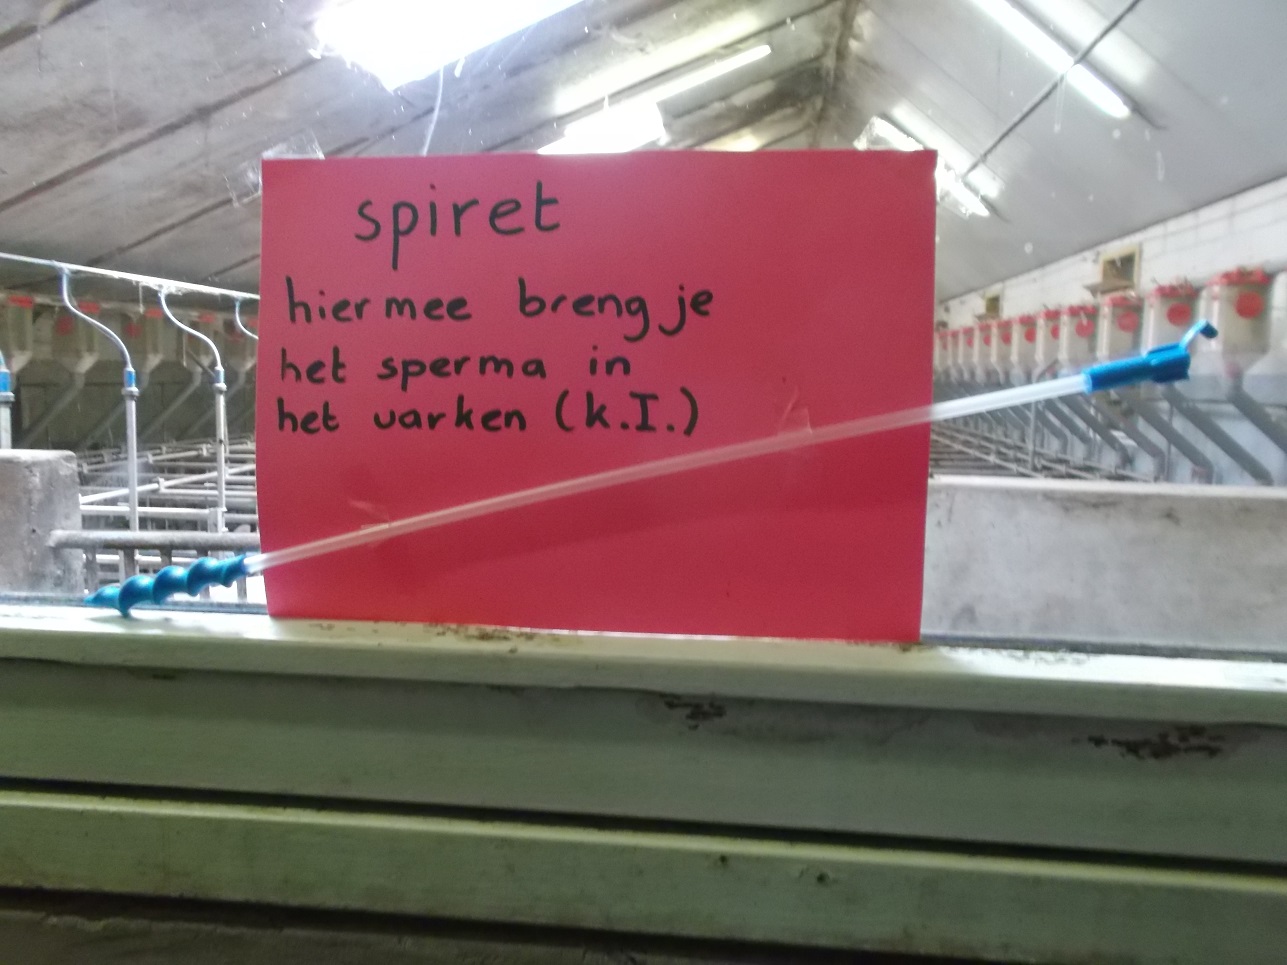 spiret
hiermee breng je
het sperma in
het varken (k.I.)